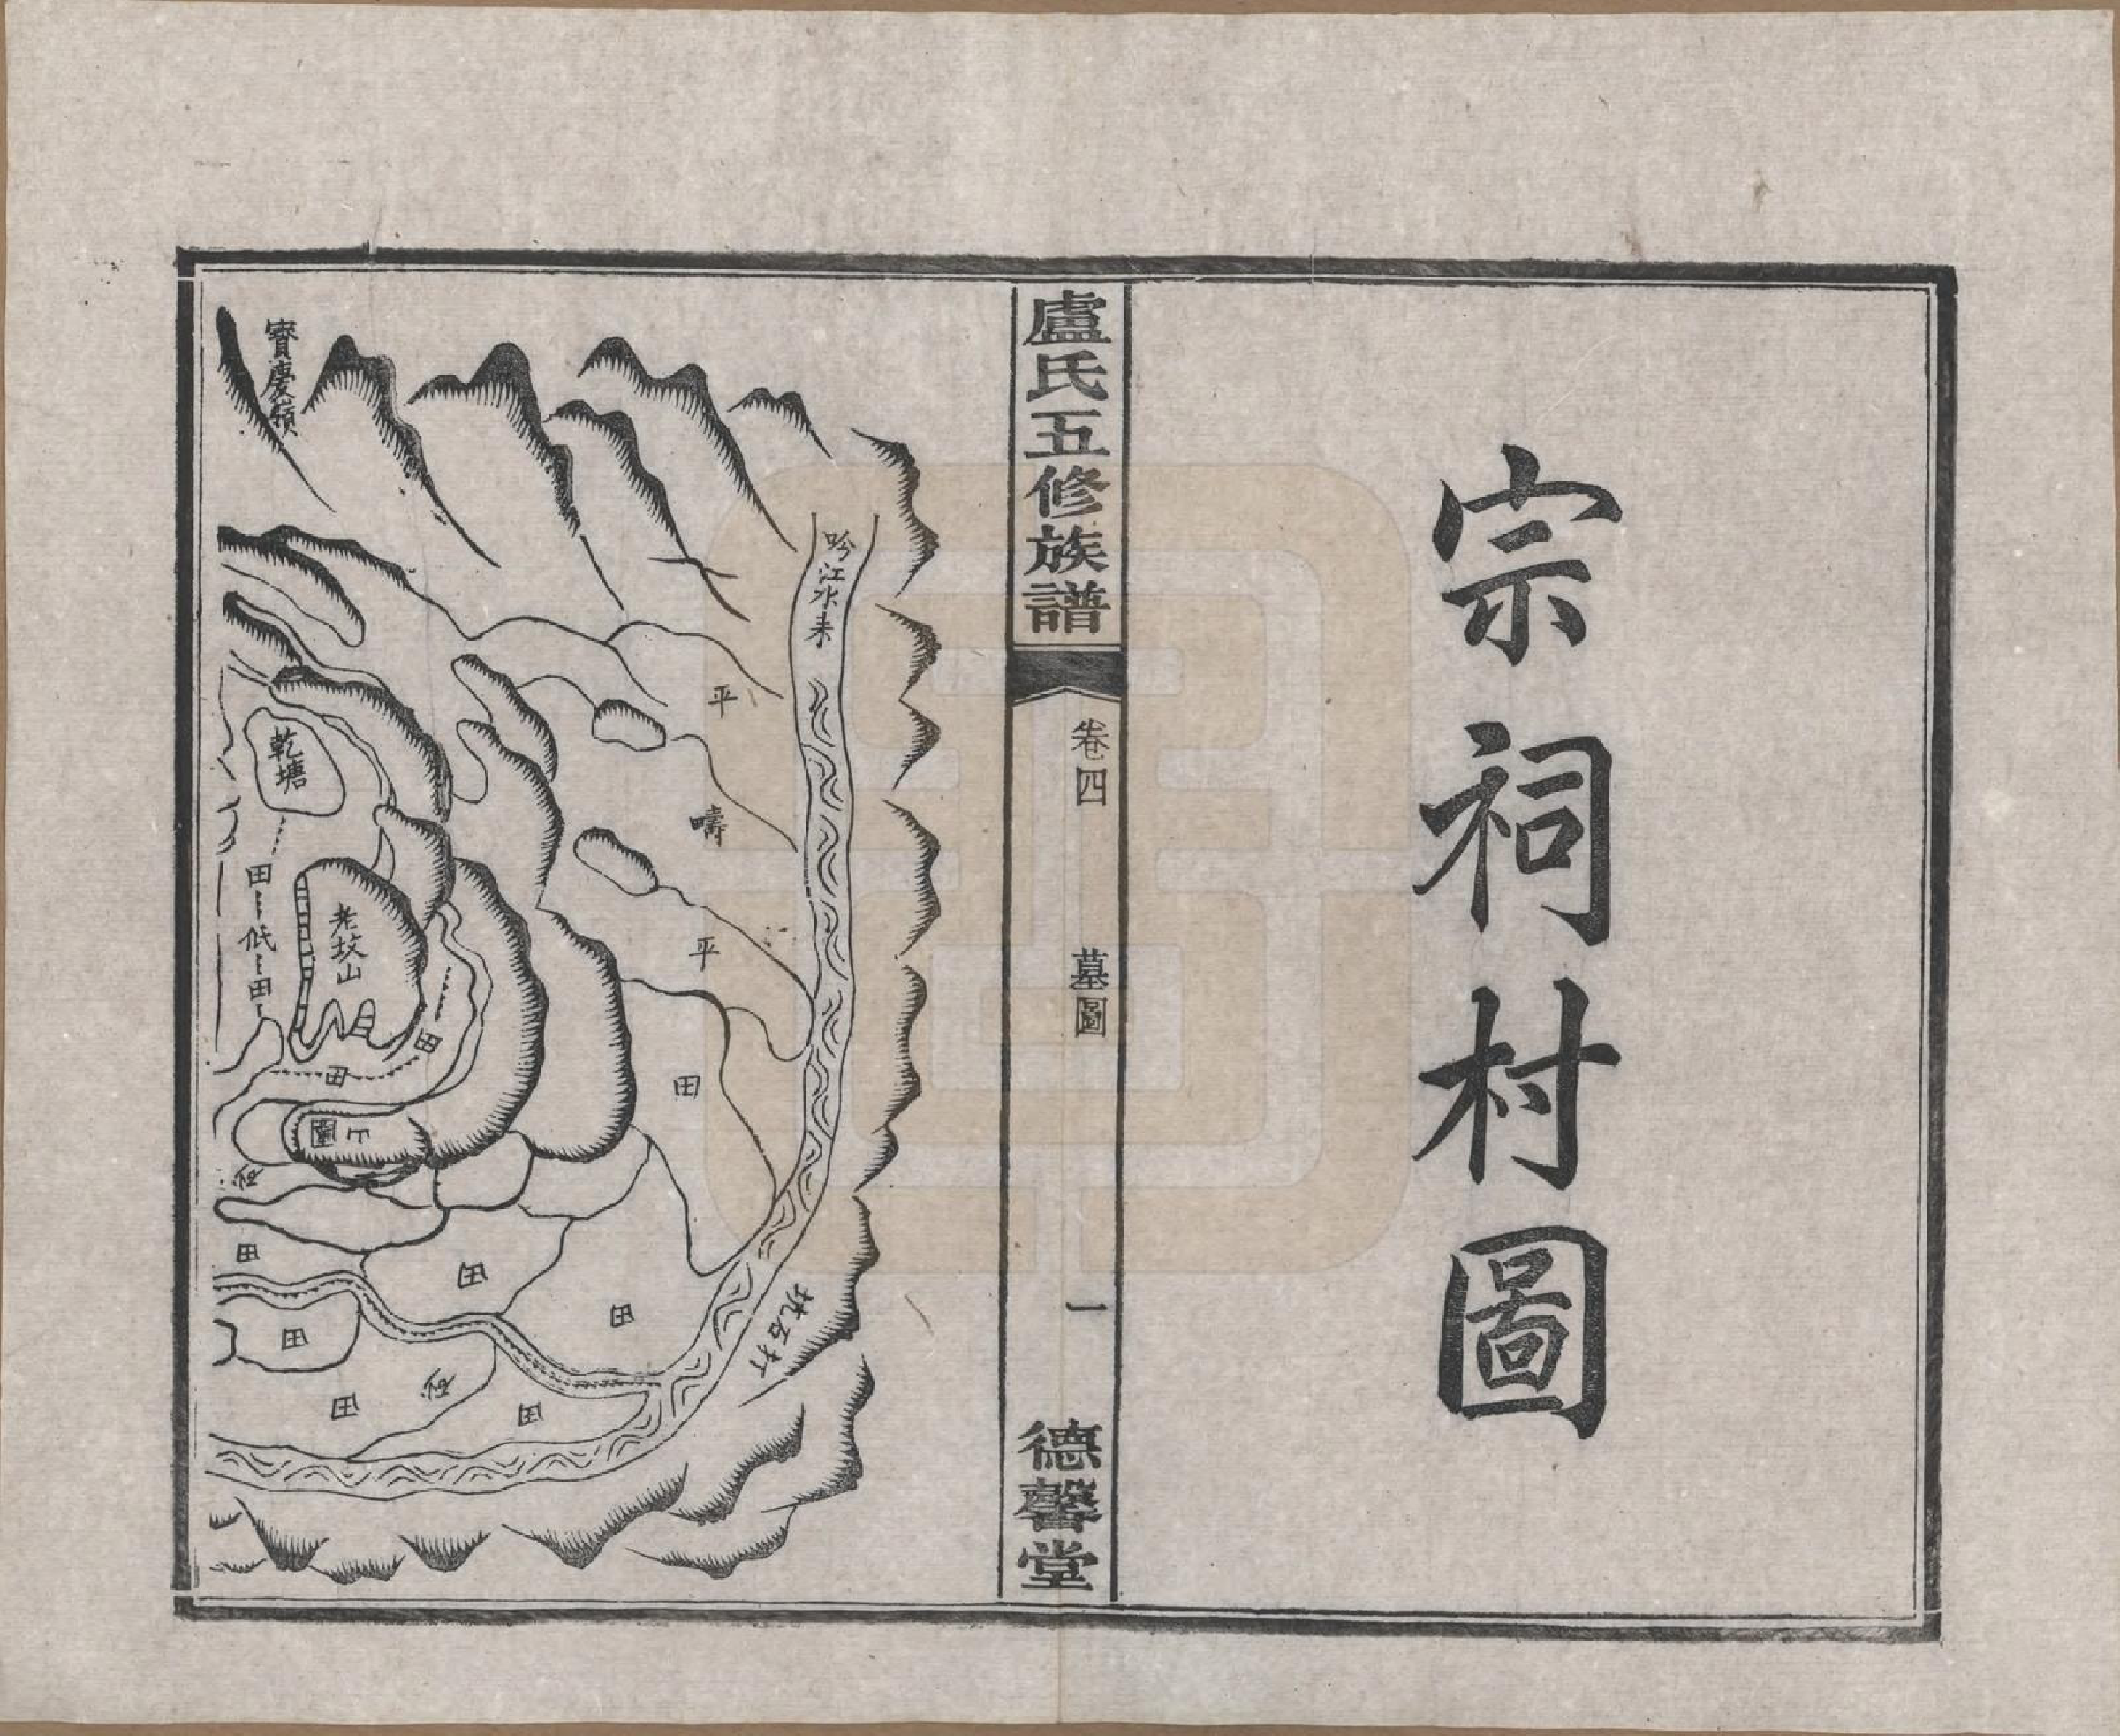 宗祠村圖
盧氏五修族譜
卷四
墓圖
一
德馨堂
吟江水来
平
疇
平
田
打石坑
田
田
田
田
田
田
寶慶嶺
乾塘
田
低
田
老坟山
田
田
上
園